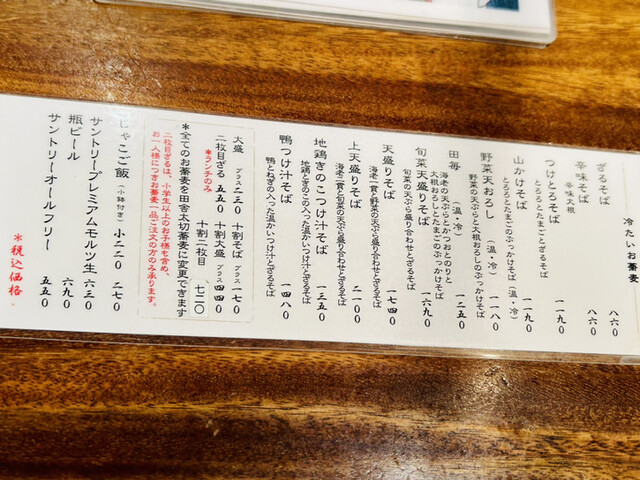 冷たいお蕎麦
ざるそば 八六〇
辛味そば 八六〇
辛味大根
つけとろそば 一一九〇
とろろとたまごとざるそば
山かけそば 一一九〇
とろろとたまごのぶっかけそば（温・冷）
野菜天おろし（温・冷） 一一八〇
野菜の天ぷらと大根おろしのぶっかけそば
田毎（温・冷） 一二五〇
海老の天ぷらとかつおとのりと
大根おろしとたまごのぶっかけそば
旬菜天盛りそば 一六九〇
旬菜の天ぷら盛り合わせとざるそば
天盛りそば 一七四〇
海老一貫と野菜の天ぷら盛り合わせとざるそば
上天盛りそば 二一〇〇
海老二貫と旬菜の天ぷら盛り合わせとざるそば
地鶏きのこつけ汁そば 一三五〇
地鶏ときのこの入った温かいつけ汁とざるそば
鴨つけ汁そば 一四八〇
鴨とねぎの入った温かいつけ汁とざるそば
大盛 プラス二三〇 十割そば プラス一七〇
二枚目ざる 五五〇 十割大盛 プラス四四〇
＊ランチのみ 十割二枚目 七二〇
＊全てのお蕎麦を田舎太切蕎麦に変更できます
二枚目ざるは、小学生以上のお子様も含め、
お一人様につきお蕎麦一品ご注文の方のみ承ります。
じゃこご飯（小鉢付き） 小二二〇 二七〇
サントリープレミアムモルツ生 六三〇
瓶ビール 六九〇
サントリーオールフリー 五五〇
＊税込価格